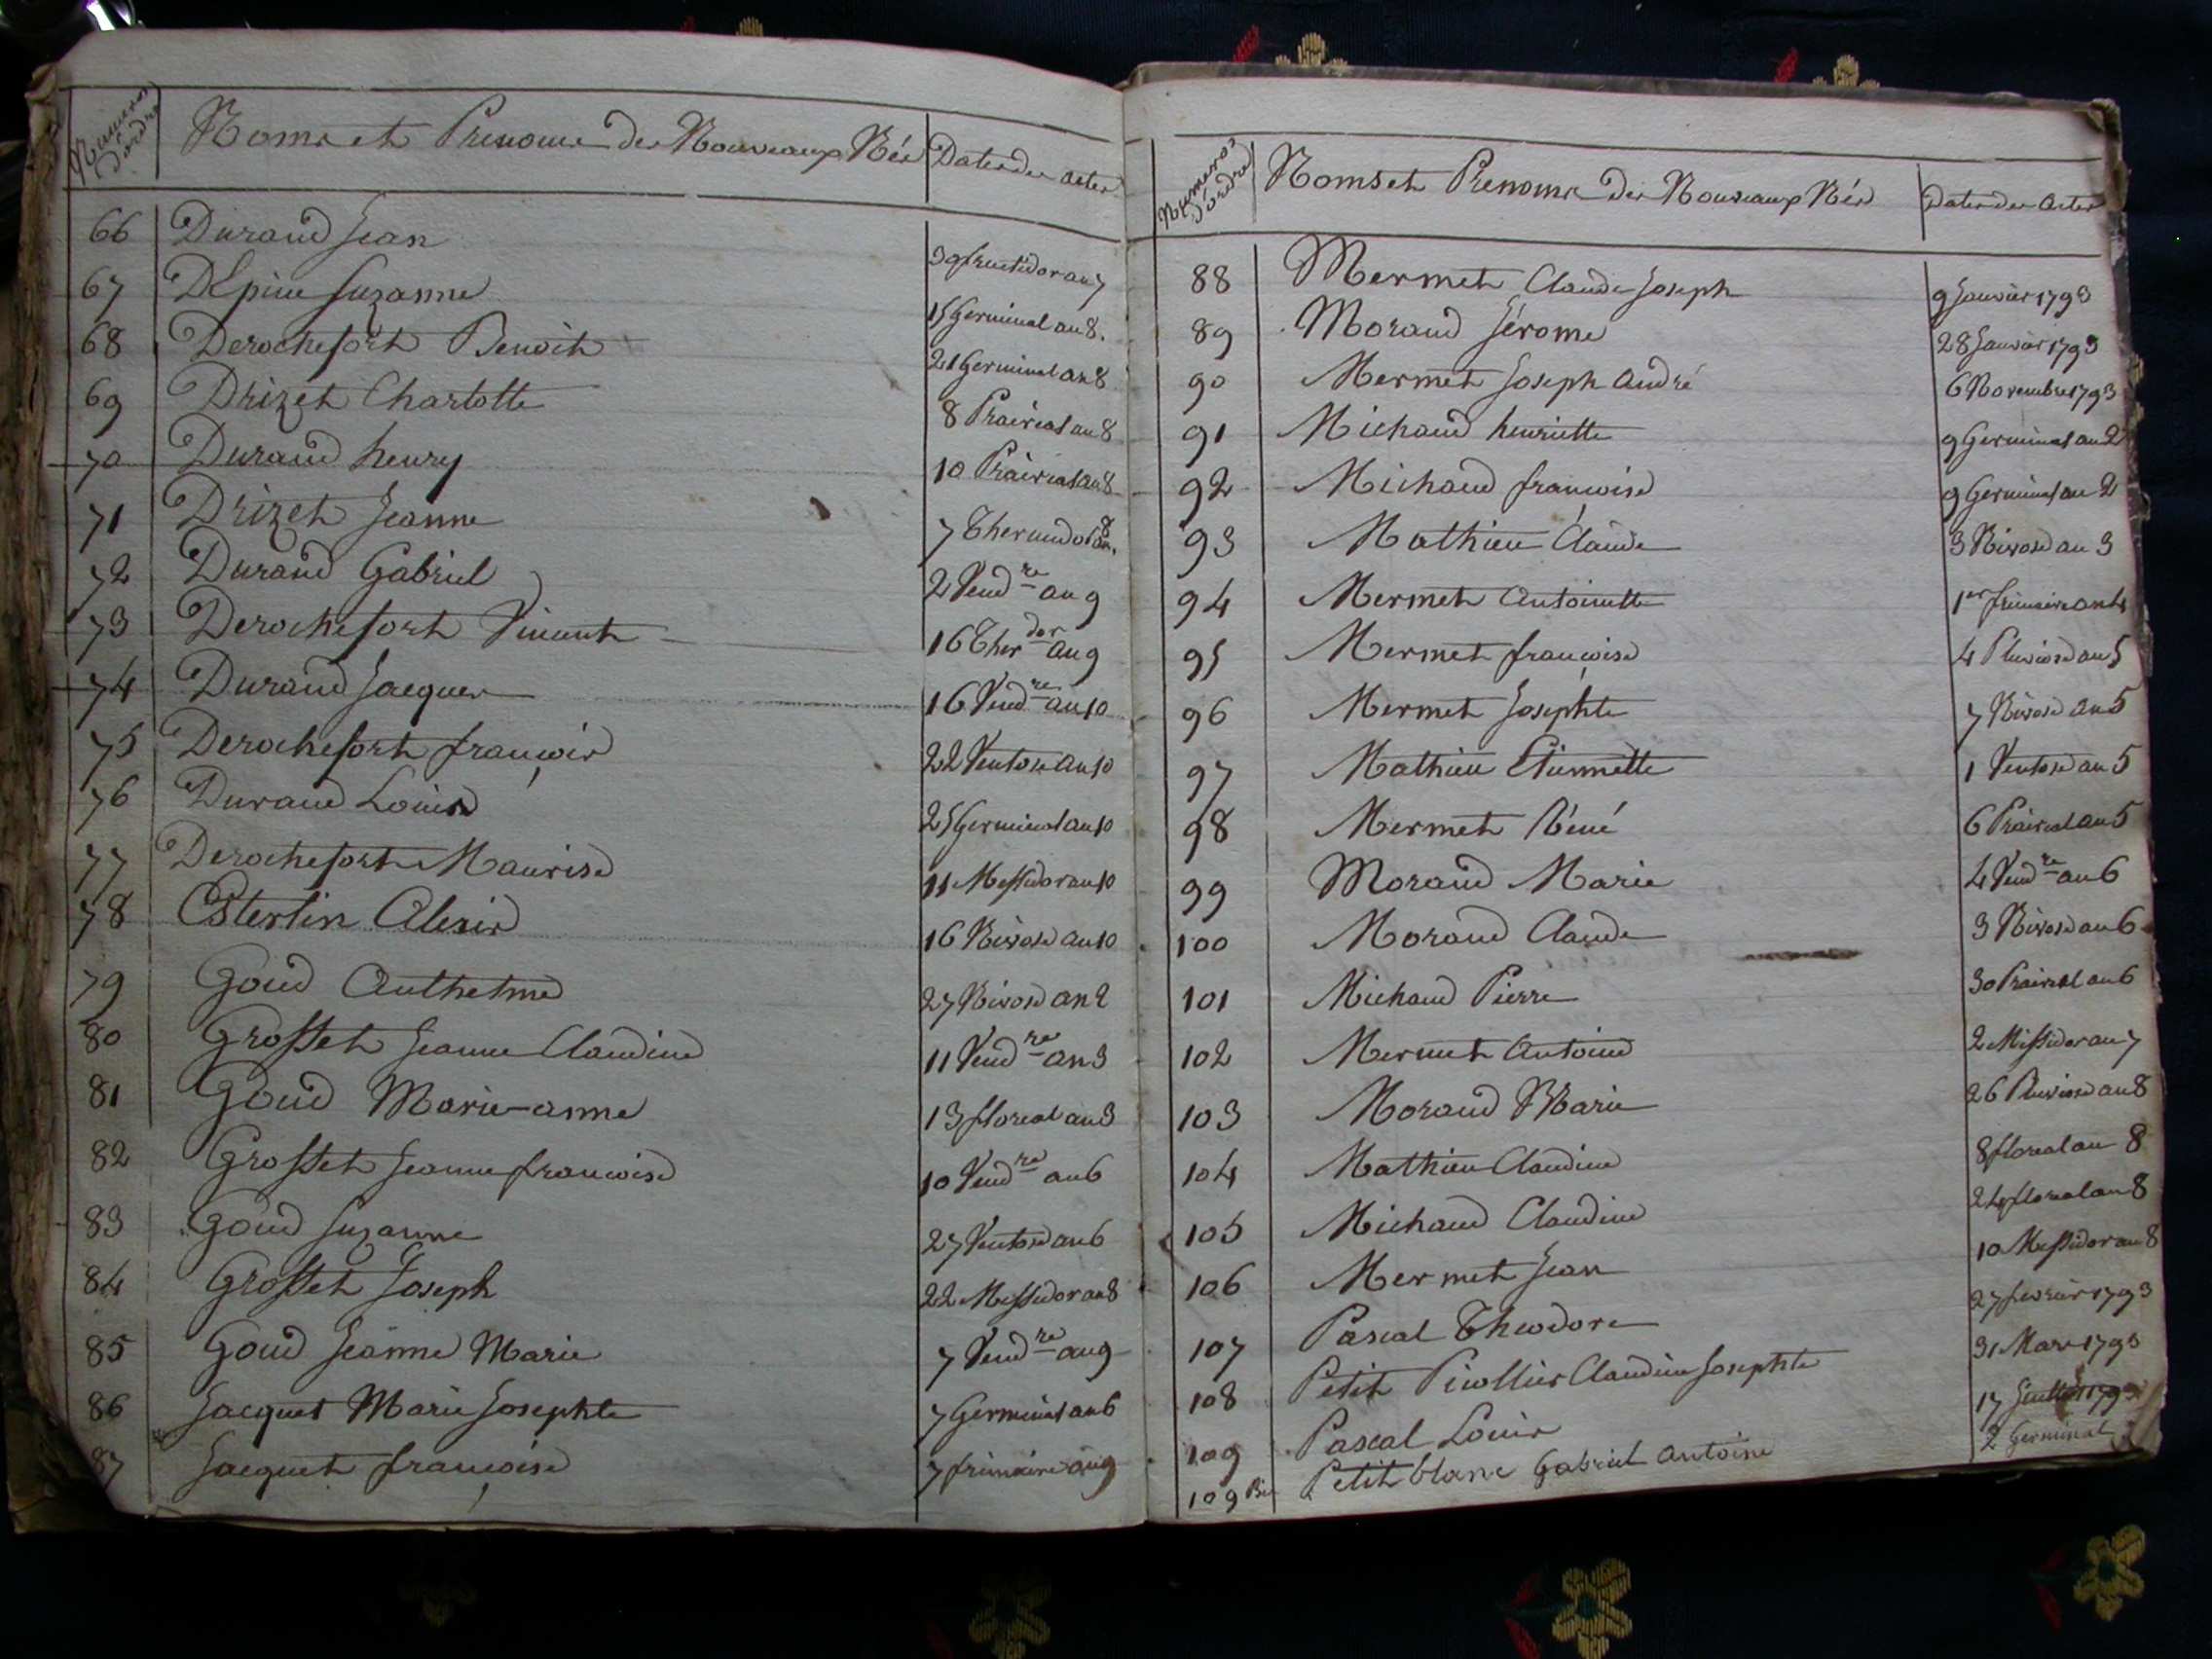 Numeros d'ordre | Noms et Prenoms des Nouveaux Nés | Dates des actes
66 Durand Jean 39 fructidor an 7
67 DEpine Suzanne 15 Germinal an 8.
68 Derochefort Benoit 21 Germinal an 8
69 Drizet Charlotte 8 Prairial an 8
70 Durand henry 10 Prairial an 8
71 Drizet Jeanne 7 Thermidor an 8
72 Durand Gabriel 2 Vend.re an 9
73 Derochefort Vincent 16 Therdor an 9
74 Durand Jacques 16 Vend.re an 10
75 Derochefort françois 22 Ventose an 10
76 Durand Louise 25 Germinal an 10
77 Derochefort Maurise 11 Messidor an 10
78 Esterlin Alexis 16 Nivose an 10
79 Goud Anthelme 27 Nivose an 2
80 Grosset Jeanne Claudine 11 Vend.re an 3
81 Goud Marie-anne 13 floreal an 3
82 Grosset Jeanne françoise 10 Vend.re an 6
83 Goud Suzanne 27 Ventose an 6
84 Grosset Joseph 22 Messidor an 8
85 Goud Jeanne Marie 7 Vend.re an 9
86 Jacquet Marie Josephte 7 Germinal an 6
87 Jacquet françoise 7 frimaire an 9
Numeros d'ordre | Noms et Prenoms des Nouveaux Nés | Dates des Actes
88 Mermet Claude Joseph 9 Janvier 1793
89 Morand Jérome 28 Janvier 1793
90 Mermet Joseph André 6 Novembre 1793
91 Michaud henriette 9 Germinal an 2
92 Michaud françoise 9 Germinal an 2
93 Mathieu Claude 3 Nivose an 3
94 Mermet Antoinette 1er frimaire an 4
95 Mermet françoise 4 Pluviose an 5
96 Mermet Josephte 7 Nivose an 5
97 Mathieu Etiennette 1 Ventose an 5
98 Mermet Réné 6 Prairial an 5
99 Morand Marie 4 Vend.re an 6
100 Morand Claude 3 Nivose an 6
101 Michaud Pierre 30 Prairial an 6
102 Mermet Antoine 2 Messidor an 7
103 Morand Marie 26 Pluviose an 8
104 Mathieu Claudine 8 floreal an 8
105 Michaud Claudine 24 floreal an 8
106 Mermet Jean 10 Messidor an 8
107 Pascal Theodore 27 fevrier 1793
108 Petit Picollier Claudine Josephte 31 Mars 1793
109 Pascal Louis 17 Juillet 1793
109 Bis Petit blanc Gabriel Antoine 2 Germinal